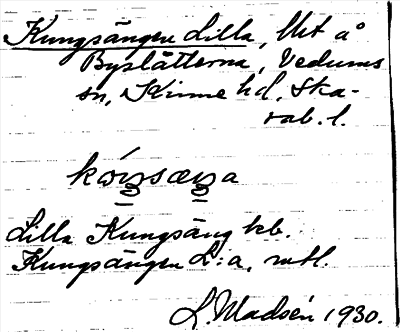 Kungsängen Lilla, Utt å
Byslätterna, Vedums
sn, Kinne hd, Ska-
rab. l.
Lilla Kungsäng kb.
Kungsängen L:a, mtl.
L. Madsén 1930.